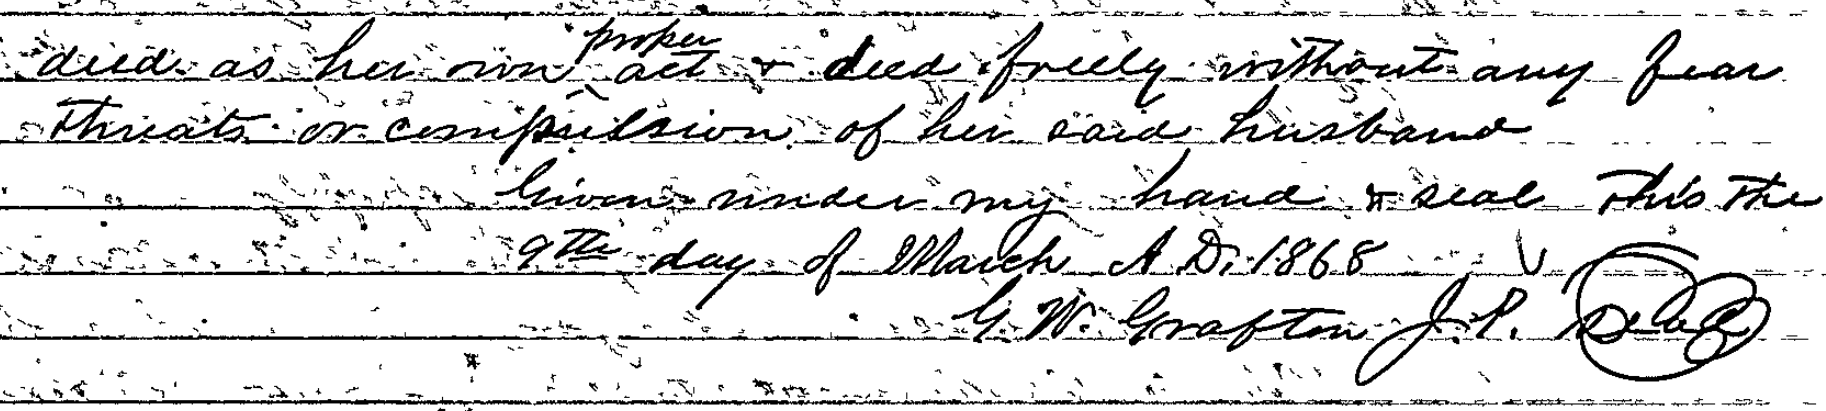 deed as her own proper act & deed freely without any fear
threats or compulsion of her said husband
Given under my hand & seal this the
9th day of March A.D. 1868
G. W. Grafton J. P. Seal